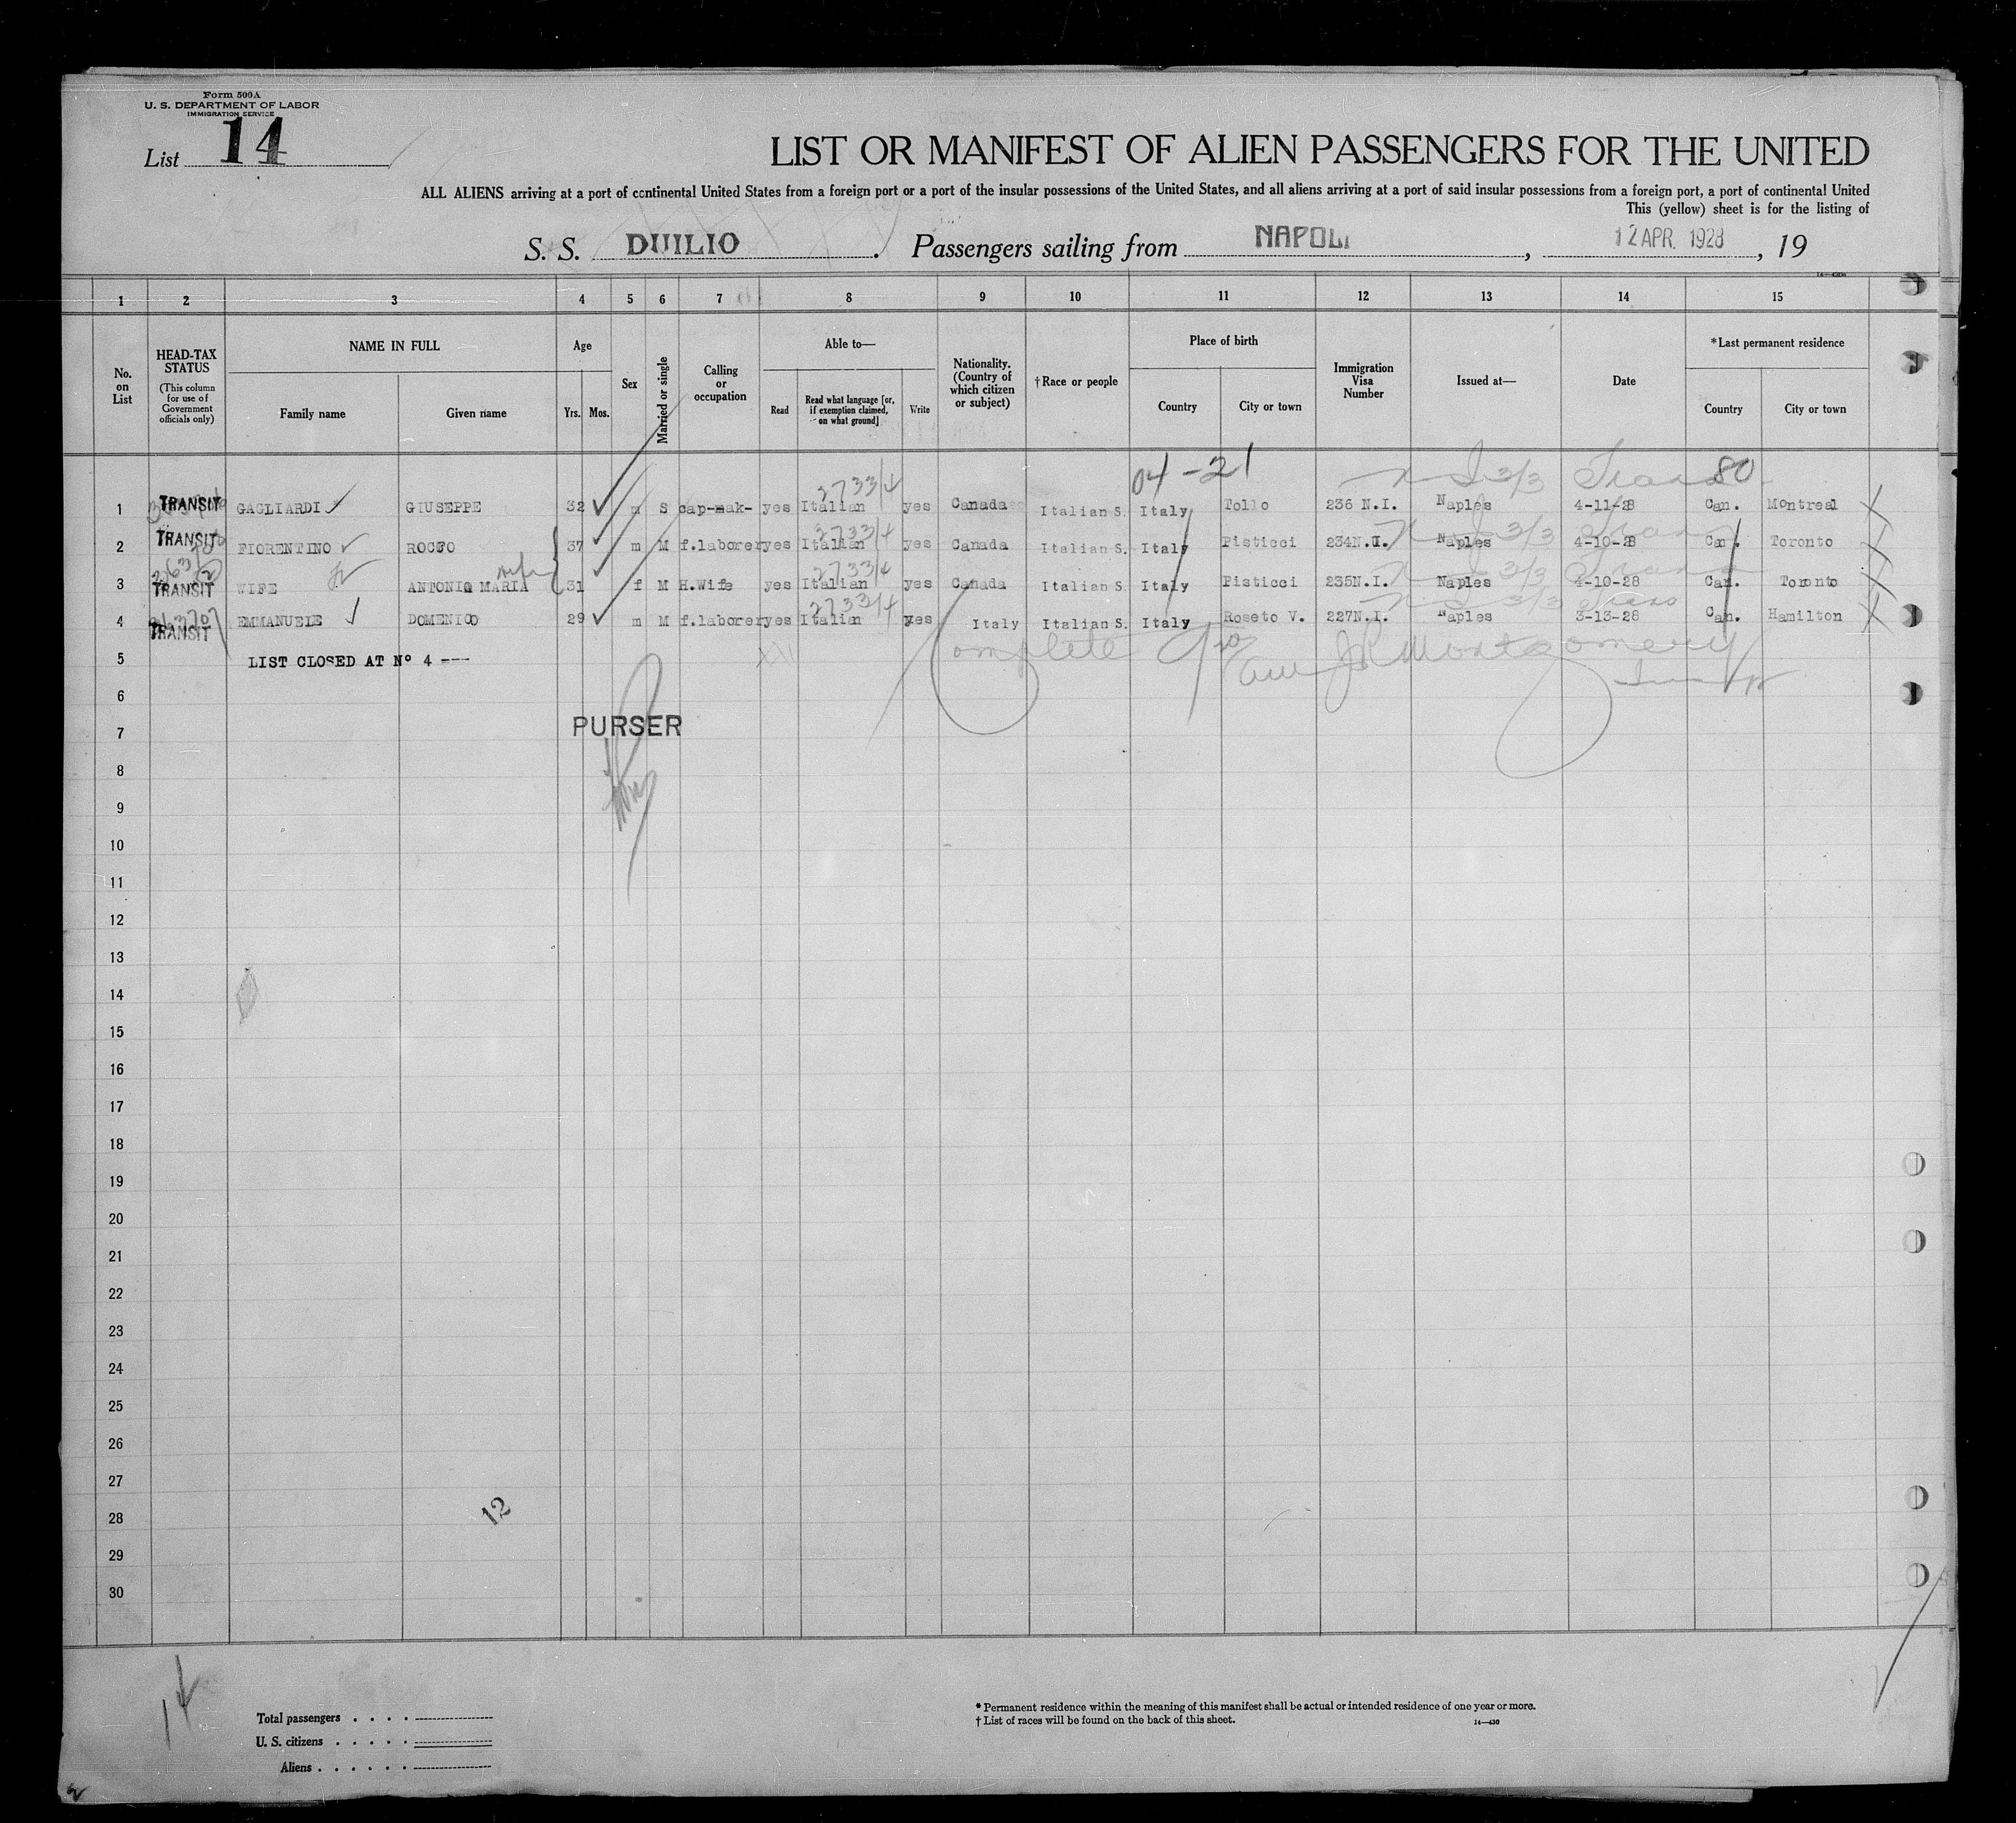 Form 500A
U. S. DEPARTMENT OF LABOR
IMMIGRATION SERVICE
List 14
LIST OR MANIFEST OF ALIEN PASSENGERS FOR THE UNITED
ALL ALIENS arriving at a port of continental United States from a foreign port or a port of the insular possessions of the United States, and all aliens arriving at a port of said insular possessions from a foreign port, a port of continental United
This (yellow) sheet is for the listing of
S. S. DUILIO. Passengers sailing from NAPOLI, 12 APR. 1928, 19
1 2 3 4 5 6 7 8 9 10 11 12 13 14 15
No. on List
HEAD-TAX STATUS (This column for use of Government officials only)
NAME IN FULL
Family name Given name
Age
Yrs. Mos.
Sex
Married or single
Calling or occupation
Able to—
Read Read what language [or, if exemption claimed, on what ground] Write
Nationality. (Country of which citizen or subject)
†Race or people
Place of birth
Country City or town
Immigration Visa Number
Issued at—
Date
*Last permanent residence
Country City or town
04-21 80
1 TRANSIT GAGLIARDI GIUSEPPE 32 m S cap-mak- yes Italian yes Canada Italian S. Italy Tollo 236 N.I. Naples 4-11-28 Can. Montreal
2 TRANSIT FIORENTINO ROCCO 37 m M f.laborer yes Italian yes Canada Italian S. Italy Pisticci 234N.I. Naples 4-10-28 Can. Toronto
3 TRANSIT WIFE ANTONIO MARIA 31 f M H.Wife yes Italian yes Canada Italian S. Italy Pisticci 235N.I. Naples 4-10-28 Can. Toronto
4 TRANSIT EMMANUELE DOMENICO 29 m M f.laborer yes Italian yes Italy Italian S. Italy Roseto V. 227N.I. Naples 3-13-28 Can. Hamilton
5 LIST CLOSED AT Nº 4 ---
Complete Montgomery
6
7 PURSER
8
9
10
11
12
13
14
15
16
17
18
19
20
21
22
23
24
25
26
27
28
12
29
30
14
Total passengers . . . .
U. S. citizens . . . . .
Aliens . . . . . .
* Permanent residence within the meaning of this manifest shall be actual or intended residence of one year or more.
† List of races will be found on the back of this sheet.
14—430